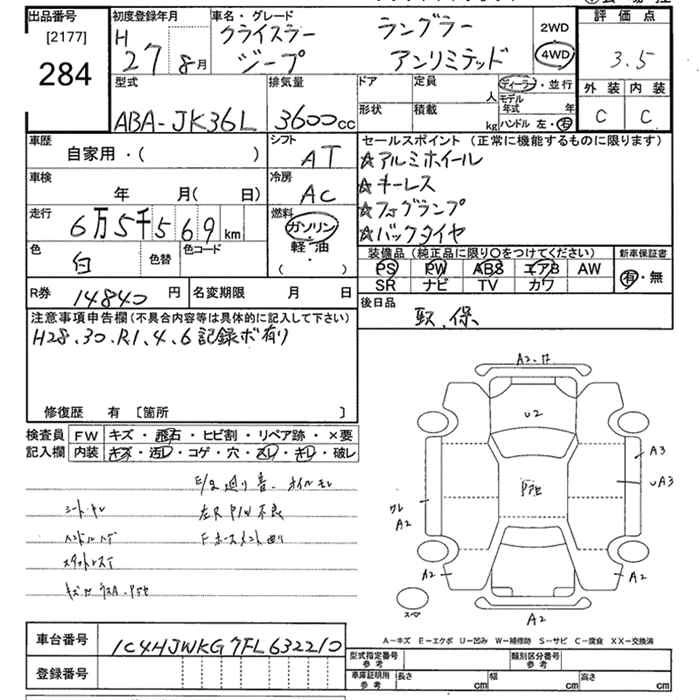 出品番号
[2177]
284
初度登録年月
H 27年 8月
車名・グレード
クライスラー ラングラー
ジープ アンリミテッド
2WD
4WD
評価点
3.5
外装 内装
C C
型式
ABA-JK36L
排気量
3600cc
ドア
定員
人
形状
積載
kg
ディーラー・並行
モデル年式 年
ハンドル 左・右
車歴
自家用・( )
シフト
AT
車検
年 月( 日)
冷房
AC
走行
6万5千569km
燃料
ガソリン・
軽油・
( )
色
白
色替
色コード
R券
14840円
名変期限 月 日
セールスポイント (正常に機能するものに限ります)
☆アルミホイール
☆キーレス
☆フォグランプ
☆バックタイヤ
装備品 (純正品に限り〇をつけてください)
PS PW ABS エアB AW
SR ナビ TV カワ
新車保証書
有・無
後日品
取、保
注意事項申告欄(不具合内容等は具体的に記入して下さい)
H28.30.R1.4.6記録ボ有り
修復歴 有 [箇所 ]
検査員記入欄
FW キズ・飛石・ヒビ割・リペア跡・×要
内装 キズ・汚レ・コゲ・穴・スレ・キレ・破レ
E/g廻り音
左R P/W不良
シート
A2
U2
A3
UA3
A2
A2
A2
A2
スペア
A-キズ E-エクボ U-凹み W-補修跡 S-サビ C-腐食 XX-交換済
車台番号
1C4HJWKG7FL632210
登録番号
型式指定番号
参考
類別区分番号
参考
車庫証明用
参考
長さ cm
幅 cm
高さ cm